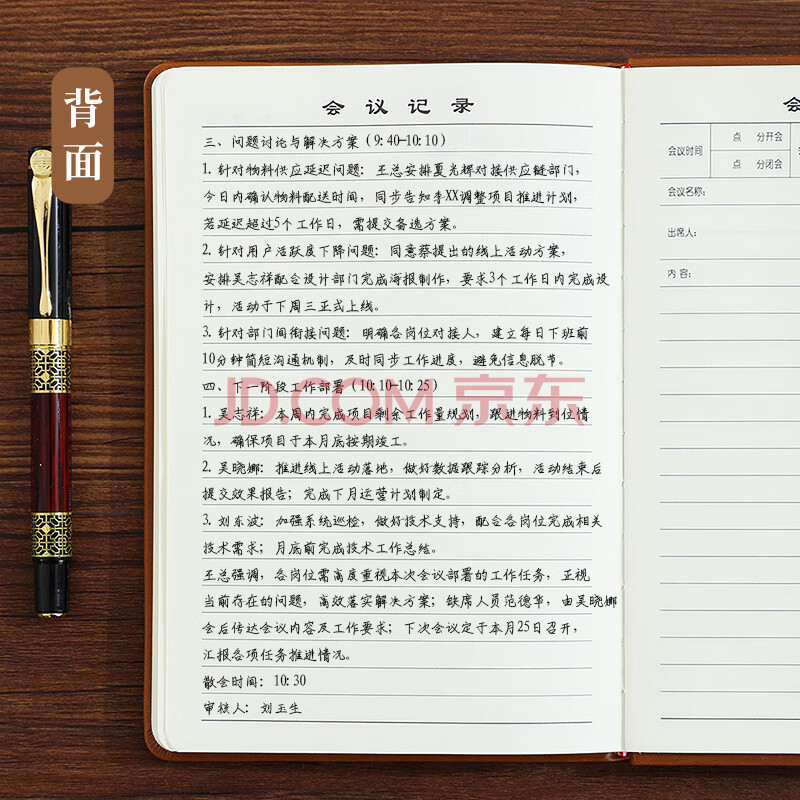 背面
会议记录
三、问题讨论与解决方案(9:40-10:10)
1. 针对物料供应延迟问题：王总安排夏光辉对接供应链部门，
今日内确认物料配送时间，同步告知李XX调整项目推进计划，
若延迟超过5个工作日，需提交备选方案。
2. 针对用户活跃度下降问题：同意蔡提出的线上活动方案，
安排吴志祥配合设计部门完成海报制作，要求3个工作日内完成设
计，活动于下周三正式上线。
3. 针对部门间衔接问题：明确各岗位对接人，建立每日下班前
10分钟简短沟通机制，及时同步工作进度，避免信息脱节。
四、下一阶段工作部署(10:10-10:25)
JD.COM 京东
1. 吴志祥：本周内完成项目剩余工作量规划，跟进物料到位情
况，确保项目于本月底按期竣工。
2. 吴晓娜：推进线上活动落地，做好数据跟踪分析，活动结束后
提交效果报告；完成下月运营计划制定。
3. 刘东波：加强系统巡检，做好技术支持，配合各岗位完成相关
技术需求；月底前完成技术工作总结。
王总强调，各岗位需高度重视本次会议部署的工作任务，正视
当前存在的问题，高效落实解决方案；缺席人员范德华，由吴晓娜
会后传达会议内容及工作要求；下次会议定于本月25日召开，
汇报各项任务推进情况。
散会时间：10:30
审核人：刘玉生
会
会议时间
点 分开会
点 分闭会
会议名称：
出席人：
内 容：